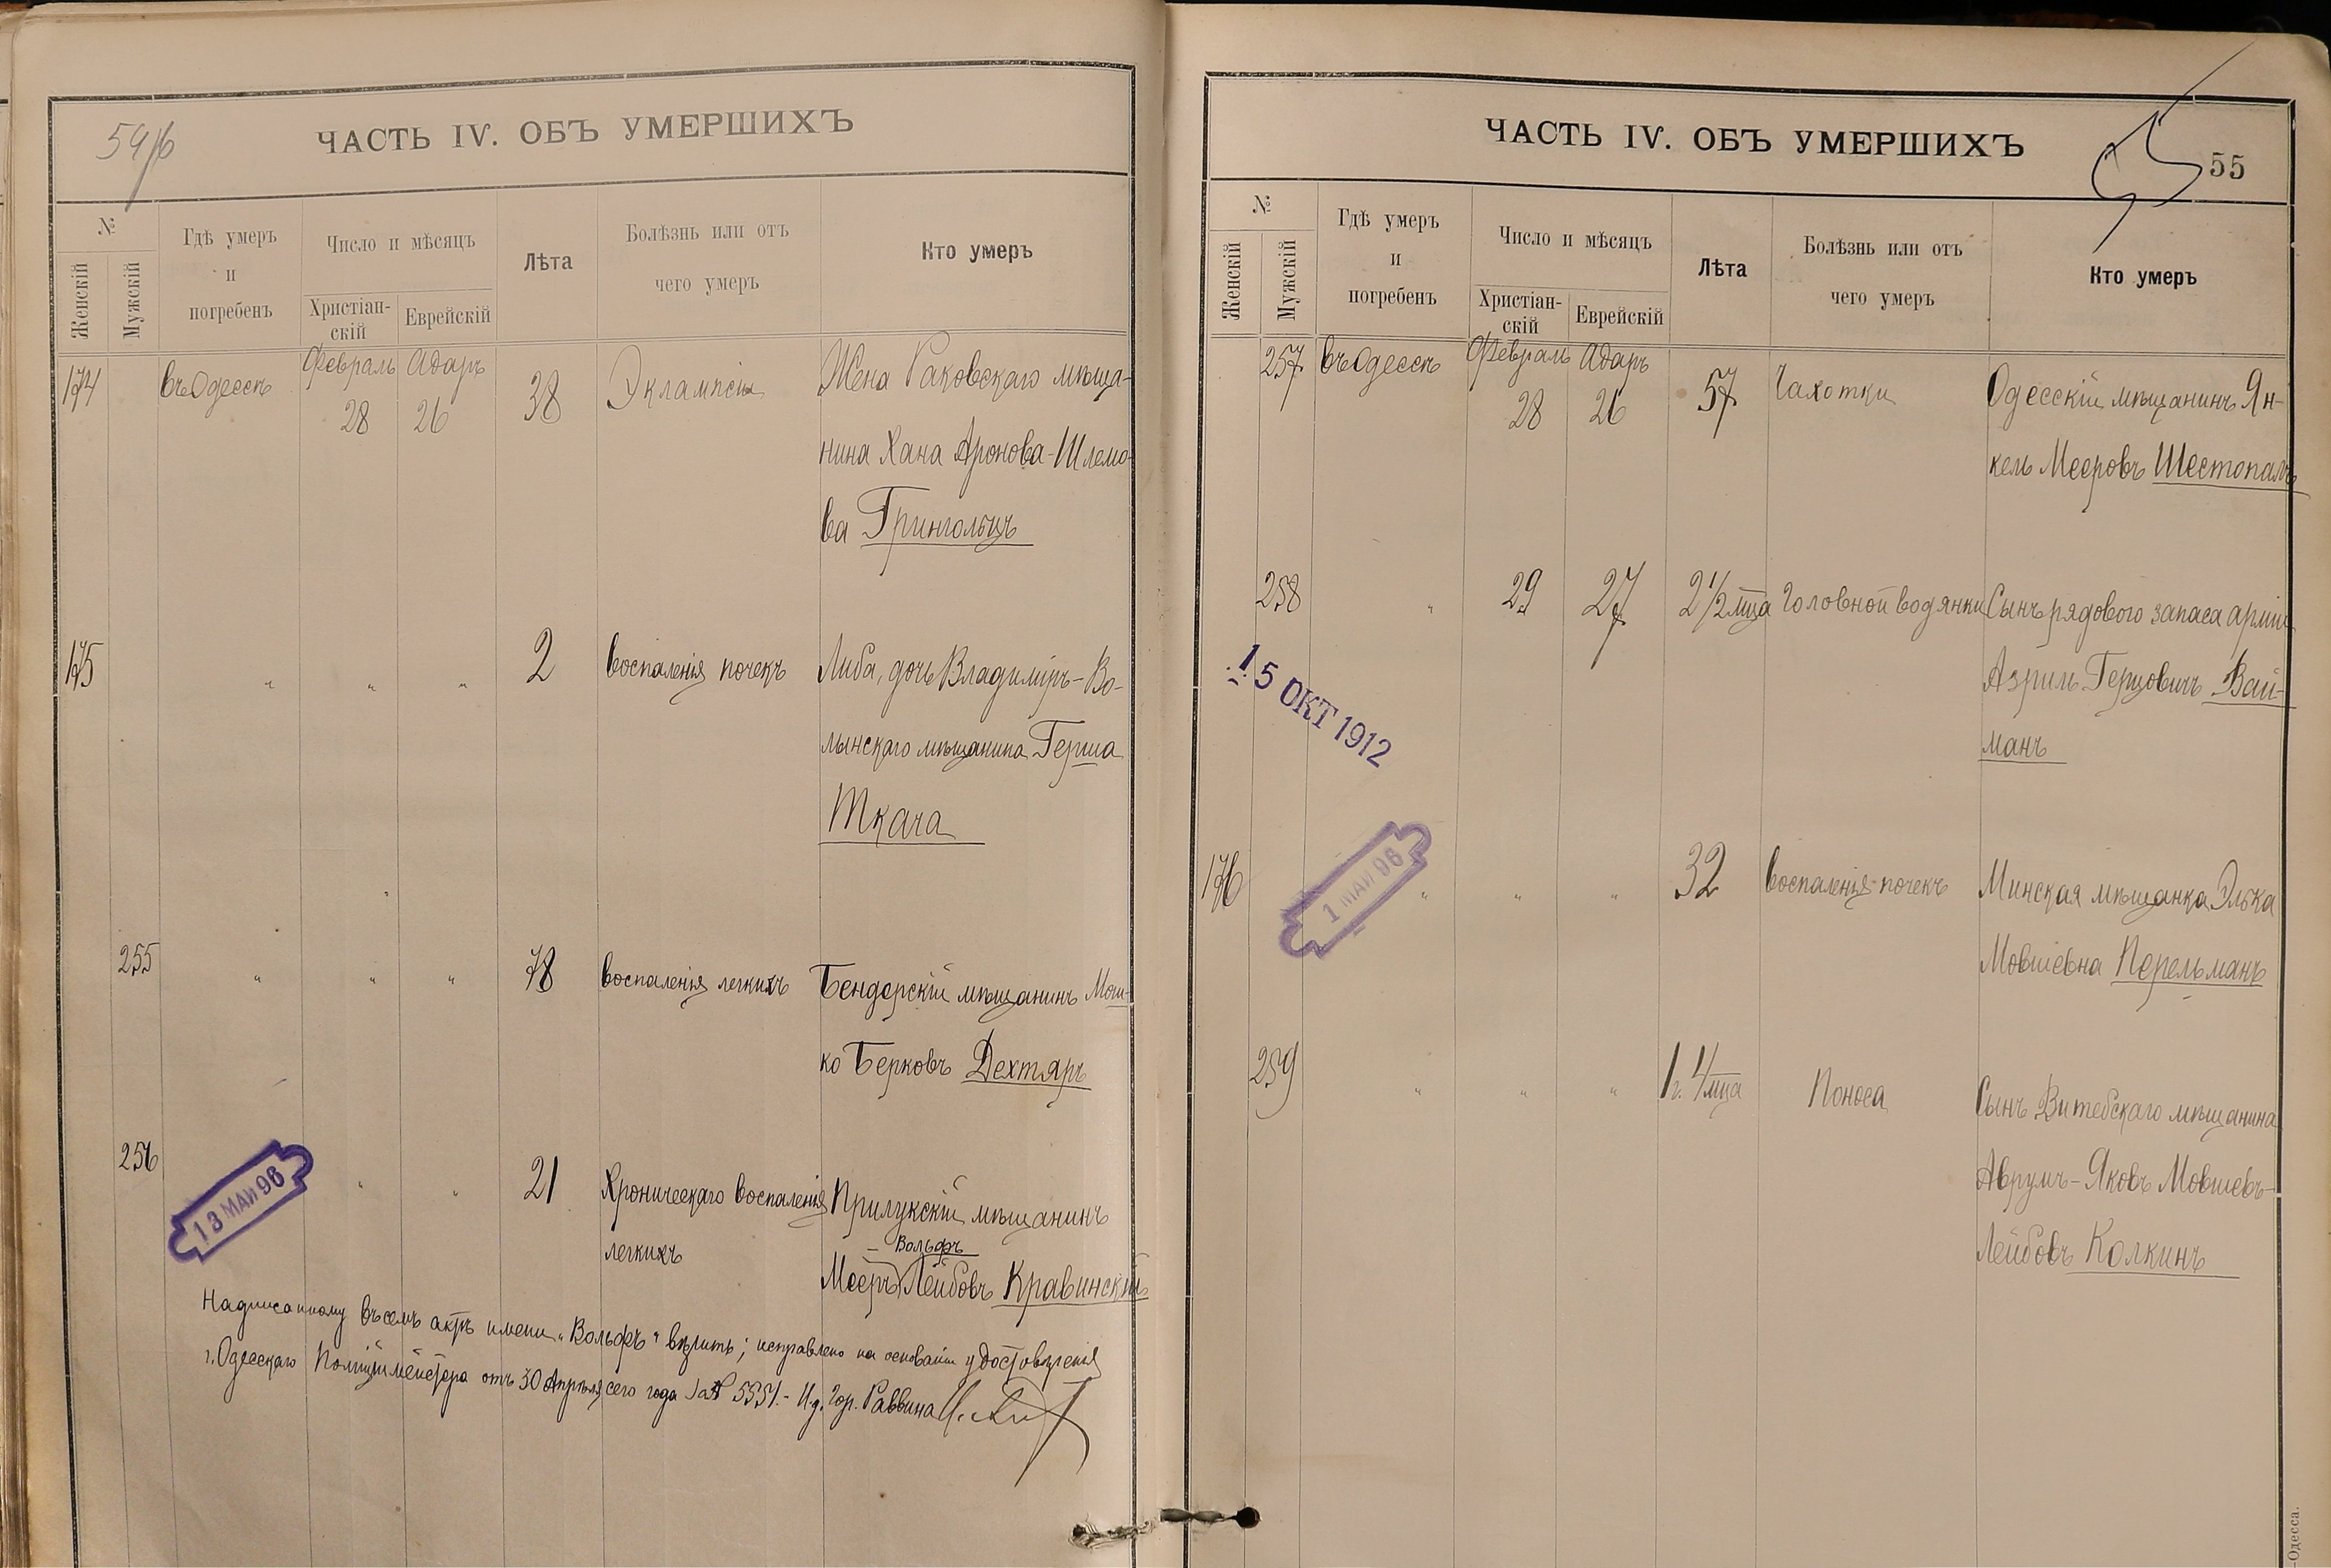 54/б
ЧАСТЬ IV. ОБЪ УМЕРШИХЪ
№
Женскій
Мужскій
Гдѣ умеръ
и
погребенъ
Число и мѣсяцъ
Христіан-
скій
Еврейскій
Лѣта
Болѣзнь или отъ
чего умеръ
Кто умеръ
174 въ Одессѣ Февраль 28 Адаръ 26 38 Эклампсіи Жена Раковскаго мѣща-
нина Хана Аронова-Шлемо-
ва Грингольцъ
175 " " " 2 воспаленія почекъ Либа, дочь Владиміръ-Во-
лынскаго мѣщанина Герша
Ткача
255 " " " 78 воспаленія легкихъ Бендерскій мѣщанинъ Мош-
ко Берковъ Дехтяръ
256 " " 21 Хроническаго воспаленія Прилукскій мѣщанинъ
легкихъ
Вольфъ
Мееръ Лейбовъ Кравинскій
13 МАИ 96
Надписанному въ семъ актѣ имени "Вольфъ" вѣрить; исправлено на основаніи удостовѣренія
г. Одесскаго Полиціймейстера отъ 30 Апрѣля сего года за № 5551.- И.д. Гор. Раввина
ЧАСТЬ IV. ОБЪ УМЕРШИХЪ
55
№
Женскій
Мужскій
Гдѣ умеръ
и
погребенъ
Число и мѣсяцъ
Христіан-
скій
Еврейскій
Лѣта
Болѣзнь или отъ
чего умеръ
Кто умеръ
257 въ Одессѣ Февраль 28 Адаръ 26 57 Чахотки Одесскій мѣщанинъ Ян-
кель Мееровъ Шестопалъ
258 " 29 27 2 1/2 мца Головной водянки Сынъ рядового запаса арміи
Азриль Герцовичъ Вай-
манъ
15 ОКТ 1912
1 МАИ 96
176 " " " 32 воспаленія почекъ Минская мѣщанка Элька
Мовшевна Перельманъ
259 " " " 1 г. 4/мца Поноса Сынъ Витебскаго мѣщанина
Аврумъ-Яковъ Мовшевъ-
Лейбовъ Колкинъ
-Одесса.